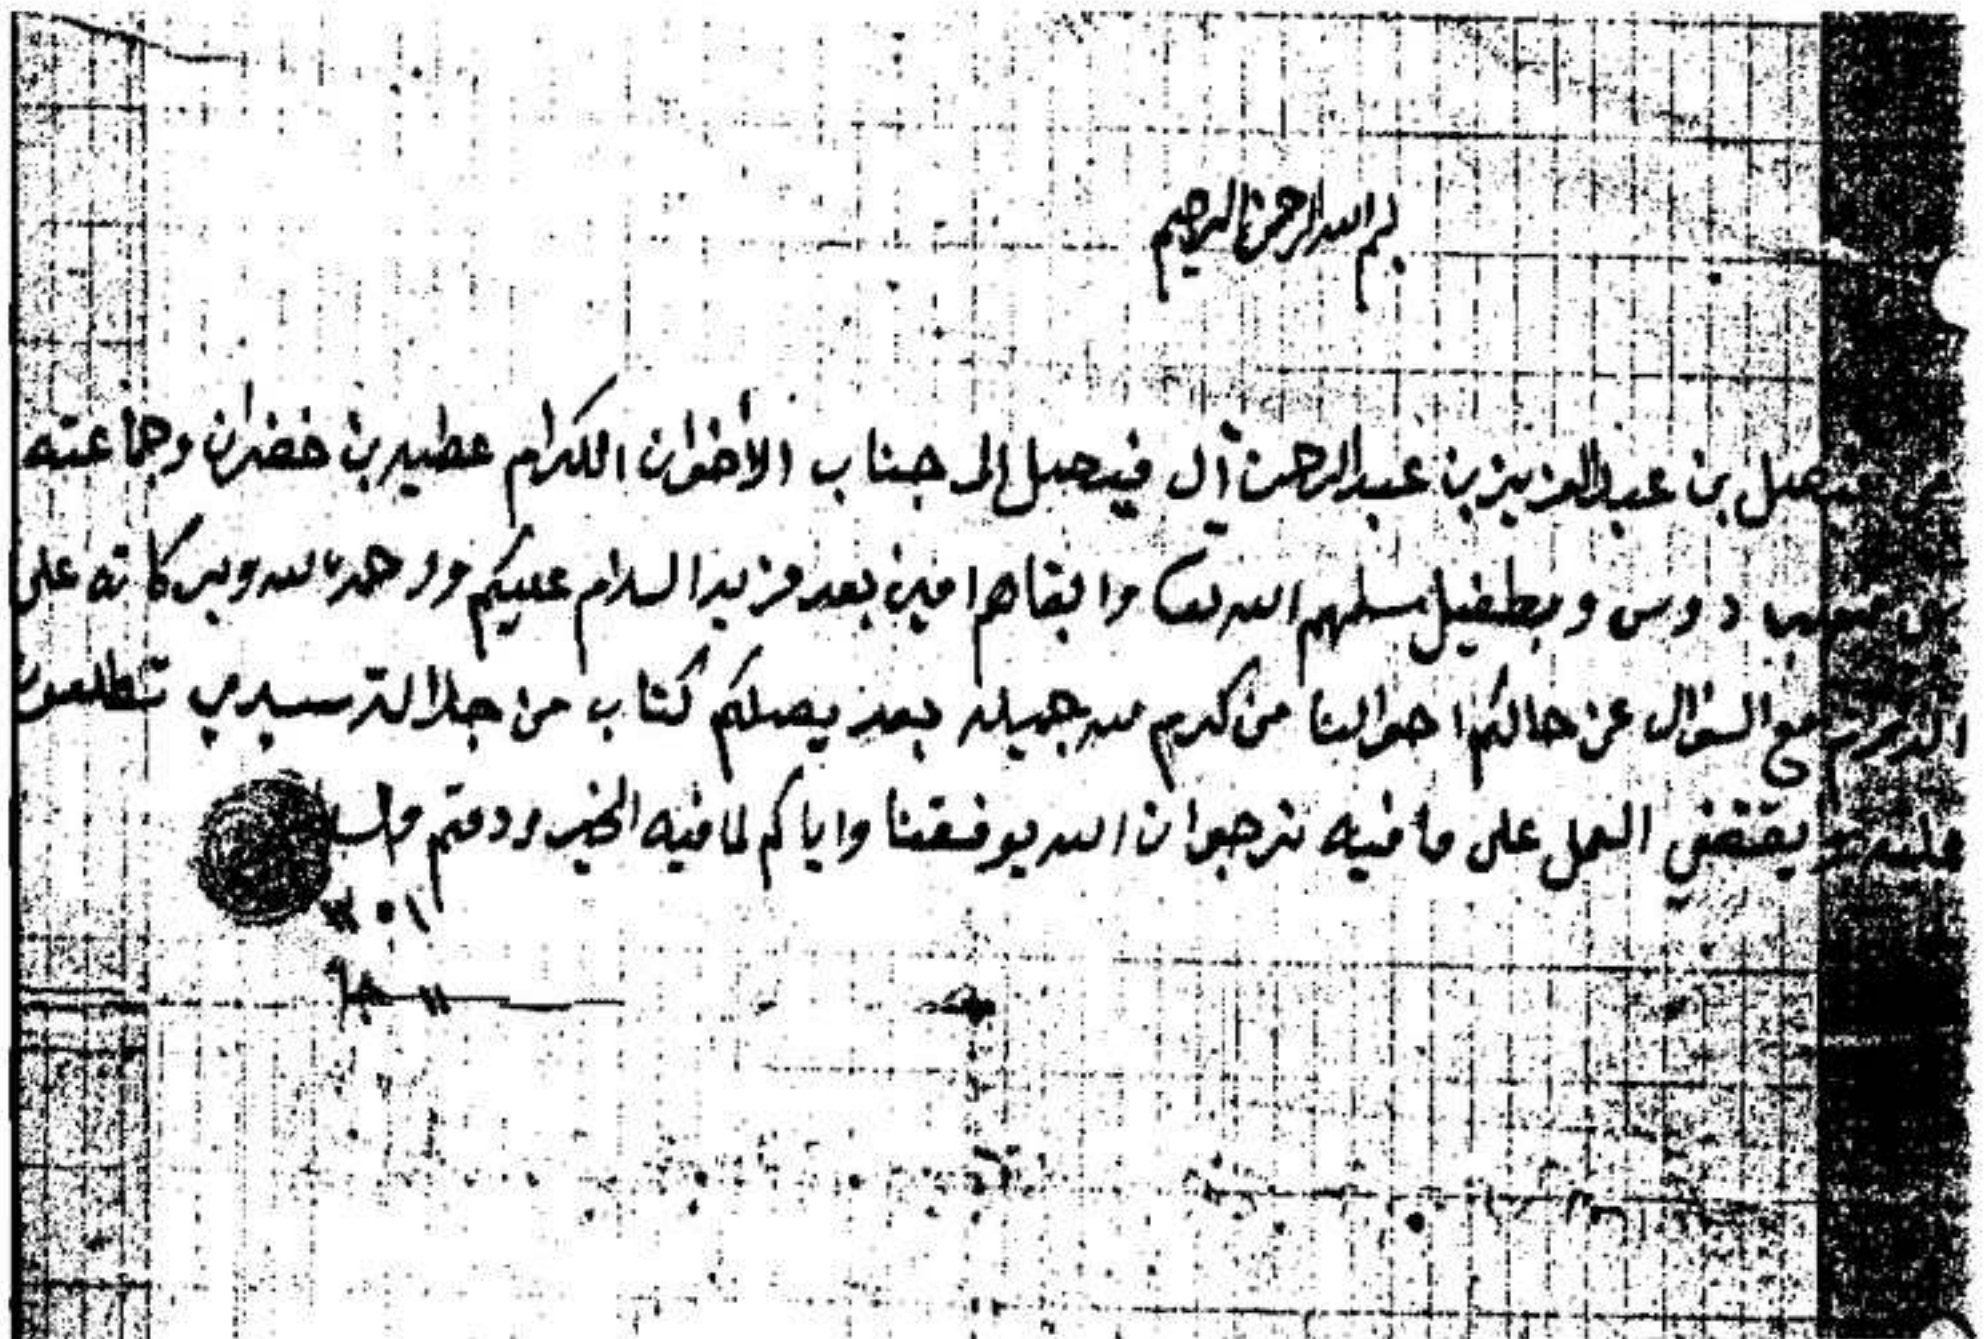 بسم الله الرحمن الرحيم
من فيصل بن عبدالعزيز بن عبدالرحمن آل فيصل إلى جناب الأخوان الكرام عطيه بن خضران وجماعته
دوس وبطفيل سلمهم الله تعا وابقاهم امين بعد مزيد السلام عليكم ورحمة الله وبركاته على
الدوام مع السؤال عن حالكم احوالنا من كرم الله جميله بعد يصلكم كتاب من جلالة سيدي تطلعون
عليه ويقتضي العمل على ما فيه نرجوا ان الله يوفقنا واياكم لما فيه الخير ودمتم والسلا